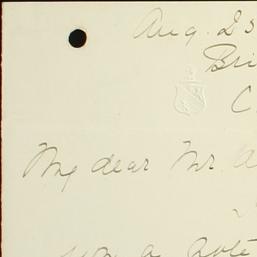 Aug. 23
Bri
C
My dear Mr. A
a note